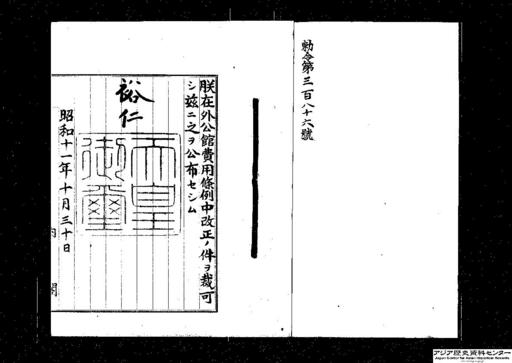 勅令第三百八十六號
朕在外公館費用條例中改正ノ件ヲ裁可
シ茲ニ之ヲ公布セシム
裕仁
天皇
御璽
昭和十一年十月三十日
内閣
アジア歴史資料センター
Japan Center for Asian Historical Records